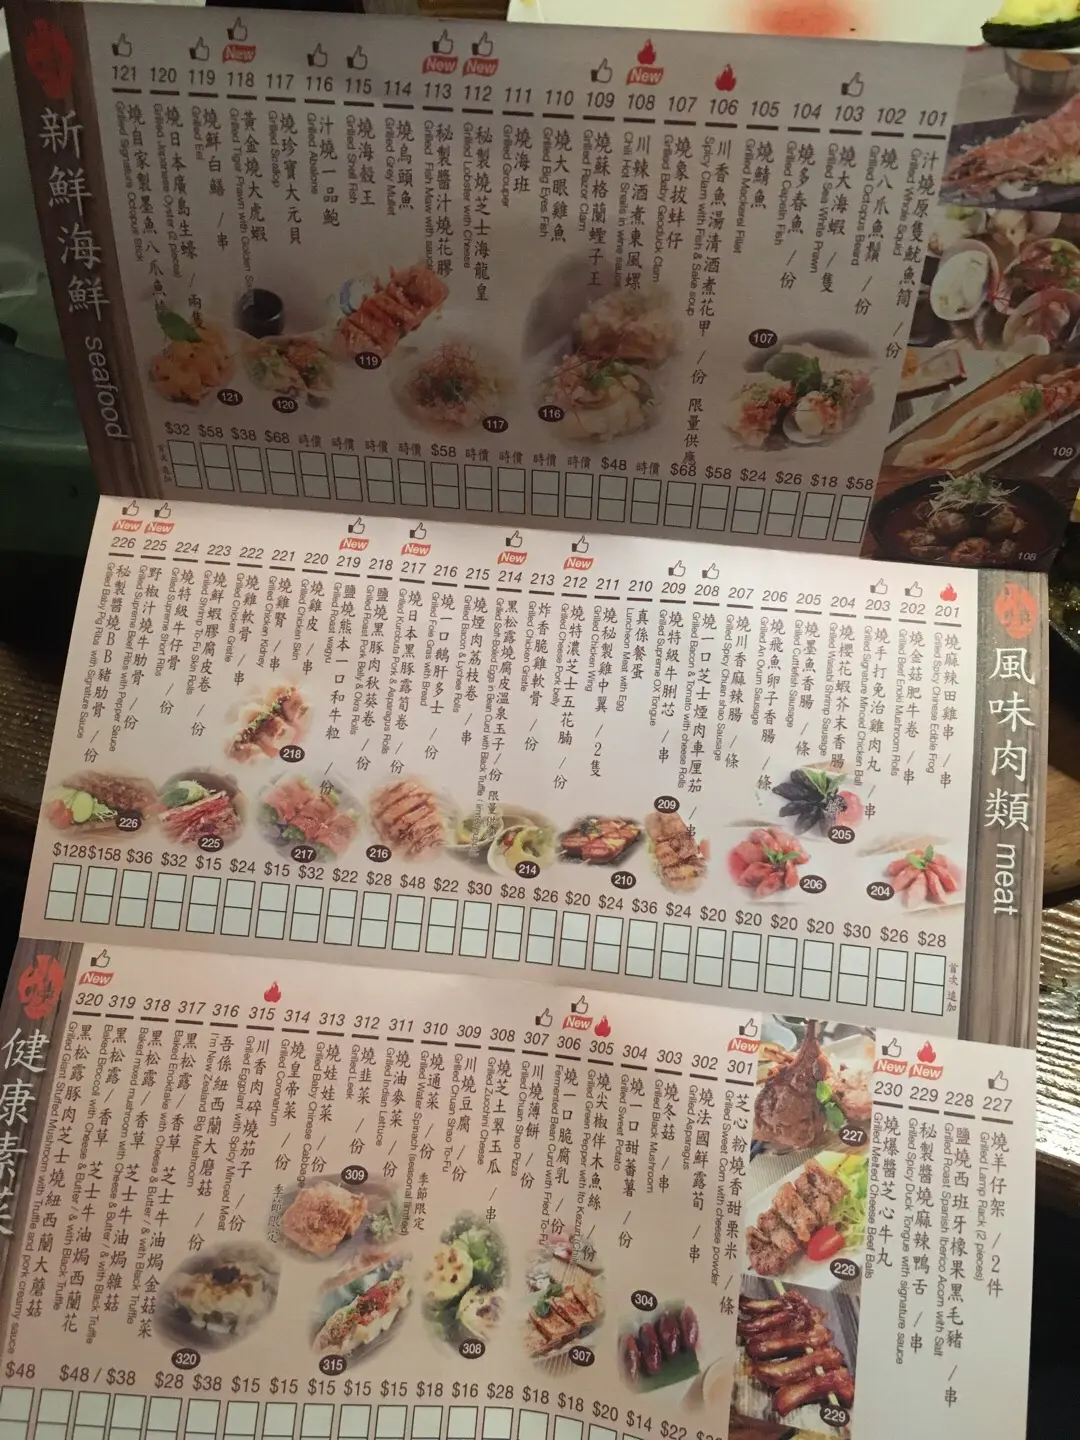 新鮮海鮮 seafood
101
汁燒原隻魷魚筒 / 份
Grilled Whole Squid
$58
102
燒八爪魚鬚 / 份
Grilled Octopus Beard
$18
103
燒大海蝦 / 隻
Grilled Sea White Prawn
$26
104
燒多春魚 / 份
Grilled Capelin Fish
$24
105
燒鯖魚
Grilled Mackerel Fillet
$58
106
川香魚湯清酒煮花甲 / 份 限量供應
Spicy Clam with Fish & Sake soup
$68
107
燒象拔蚌仔
Grilled Baby Geoduck Clam
時價
New
108
川辣酒煮東風螺
Chili Hot Snails in wine sauce
$48
109
燒蘇格蘭蟶子王
Grilled Razor Clam
時價
110
燒大眼雞魚
Grilled Big Eyes Fish
時價
111
燒海班
Grilled Grouper
時價
New
112
秘製燒芝士海龍皇
Grilled Lobster with Cheese
時價
New
113
秘製醬汁燒花膠
Grilled Fish Maw with sauce
$58
114
燒烏頭魚
Grilled Grey Mullet
時價
115
燒海殼王
Grilled Shell Fish
時價
116
汁燒一品鮑
Grilled Abalone
時價
117
燒珍寶大元貝
Grilled Scallop
時價
New
118
黃金燒大虎蝦
Grilled Tiger Prawn with Golden
$68
119
燒鮮白鱔 / 串
Grilled Eel
$38
120
燒日本廣島生蠔 / 兩隻
Grilled Japanese Oyster (2 pieces)
$58
121
燒自家製墨魚八爪魚
Grilled Signature Octopus Stick
$32
風味肉類 meat
201
燒麻辣田雞 / 串
Grilled Spicy Chinese Edible Frog
$28
202
燒金菇肥牛卷 / 串
Grilled Beef Enoki Mushroom Rolls
$26
203
燒手打免治雞肉丸 / 串
Grilled Signature Minced Chicken Ball
$30
204
燒櫻花蝦芥末香腸 / 條
Grilled Wasabi Shrimp Sausage
$20
205
燒墨魚香腸 / 條
Grilled Cuttlefish Sausage
$20
206
燒飛魚卵子香腸 / 條
Grilled An Ovum Sausage
$20
207
燒川香麻辣腸 / 條
Grilled Spicy Chuan shao Sausage
$20
208
燒一口芝士煙肉車厘茄 / 串
Grilled Bacon & Tomato with cheese Rolls
$24
209
燒特級牛脷芯 / 串
Grilled Supreme OX Tongue
$36
210
真係餐蛋
Luncheon Meat with Egg
$24
211
燒秘製雞中翼 / 2隻
Grilled Chicken Wing
$20
New
212
燒特濃芝士五花腩 / 份
Grilled Cheese Pork belly
$26
213
炸香脆雞軟骨 / 份
Grilled Chicken Gristle
$28
New
214
黑松露燒腐皮溫泉玉子 / 份 限量供應
Grilled Soft-Boiled Eggs in Bean Curd with Black Truffle
$30
215
燒煙肉荔枝卷 / 串
Grilled Bacon & Lychee Rolls
$22
216
燒一口鵝肝多士 / 份
Grilled Foie Gras with Bread
$48
New
217
燒日本黑豚蘆筍卷 / 份
Grilled Kurobuta Pork & Asparagus Rolls
$28
218
鹽燒黑豚肉秋葵卷 / 份
Grilled Roast Pork Belly & Okra Rolls
$22
New
219
鹽燒熊本一口和牛粒 / 份
Grilled Roast Wagyu
$32
220
燒雞皮 / 串
Grilled Chicken Skin
$15
221
燒雞腎 / 串
Grilled Chicken Kidney
$24
222
燒雞軟骨 / 串
Grilled Chicken Gristle
$15
223
燒鮮蝦膠腐皮卷 / 份
Grilled Shrimp To-Fu Skin Rolls
$32
224
燒特級牛仔骨 / 份
Grilled Supreme Short Ribs
$36
New
225
野椒汁燒牛肋骨 / 份
Grilled Supreme Beef Ribs with Pepper Sauce
$158
New
226
秘製醬燒BB豬肋骨 / 份
Grilled Baby Pig Ribs with Signature Sauce
$128
首次 追加
227
燒羊仔架 / 2件
Grilled Lamp Rack (2 pieces)
228
鹽燒西班牙橡果黑毛豬 / 串
Grilled Roast Spanish Iberico Acorn with Salt
New
229
秘製醬燒麻辣鴨舌 / 串
Grilled Spicy Duck Tongue with signature sauce
New
230
燒爆醬芝心牛丸
Grilled Melted Cheese Beef Balls
New
301
芝心粉燒香甜粟米 / 條
Grilled Sweet Corn with cheese powder
302
燒法國鮮露筍 / 串
Grilled Asparagus
$22
303
燒冬菇 / 串
Grilled Black Mushroom
$14
304
燒一口甜蕃薯 / 份
Grilled Sweet Potato
$20
305
燒尖椒伴木魚絲 / 份
Grilled Green Pepper with Ito Kezuri
$18
New
306
燒一口脆腐乳 / 份
Fermented Bean Curd with Fried To-Fu
$18
307
川燒薄餅 / 份
Grilled Chuan Shao Pizza
$28
308
燒芝士翠玉瓜 / 串
Grilled Zucchini Cheese
$16
309
川燒豆腐 / 份
Grilled Chuan Shao To-Fu
$18
310
燒通菜 / 份 季節限定
Grilled Water Spinach (seasonal limited)
$15
311
燒油麥菜 / 份
Grilled Indian Lettuce
$15
312
燒韭菜 / 份
Grilled Leek
$15
313
燒娃娃菜 / 份
Grilled Baby Chinese Cabbage
$15
314
燒皇帝菜 / 份 季節限定
Grilled Coronarium
$15
315
川香肉碎燒茄子 / 份
Grilled Eggplant with Spicy Minced Meat
$38
316
吾係紐西蘭大磨菇 / 份
I'm New Zealand Big Mushroom
$28
317
黑松露 / 香草 芝士牛油焗金菇菜
Baked Enokitake with Cheese & Butter / & with Black Truffle
318
黑松露 / 香草 芝士牛油焗雜菇
Baked mixed mushroom with Cheese & Butter / & with Black Truffle
$48 / $38
319
黑松露 / 香草 芝士牛油焗西蘭花
Baked Broccoli with Cheese & Butter / & with Black Truffle
New
320
黑松露豚肉芝士燒紐西蘭大蘑菇
Grilled Giant Stuffed Mushroom with Truffle and pork creamy sauce
$48
健康素菜